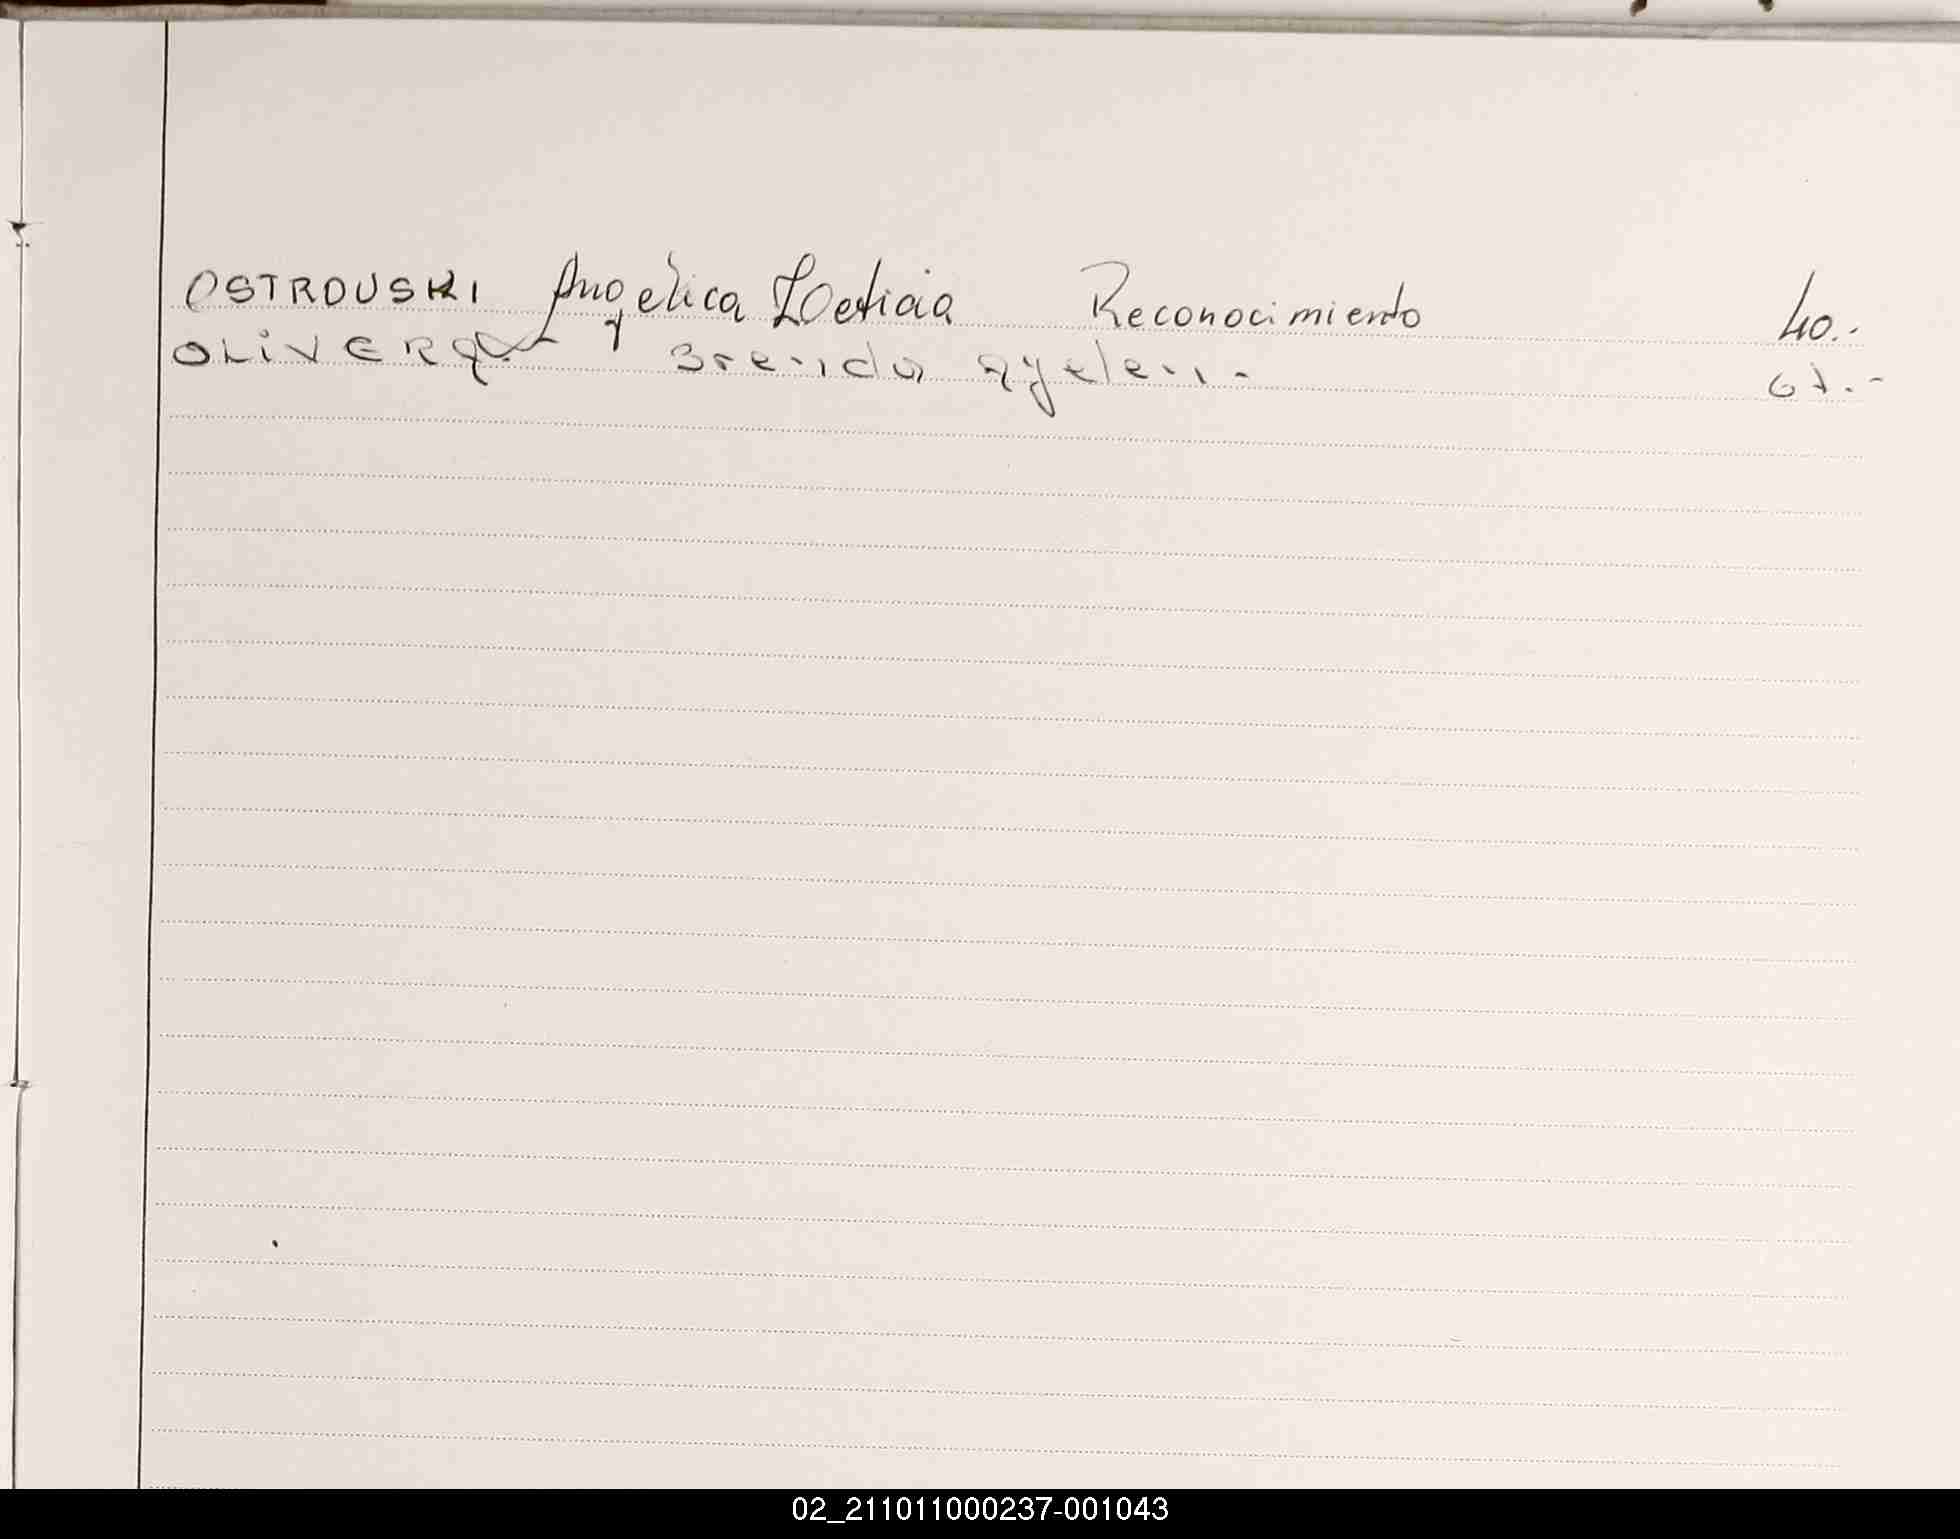 OSTROUSKI Angelica Leticia Reconocimiento 40.-
OLIVERA Brenda Ayelen.- 67.-
02_211011000237-001043